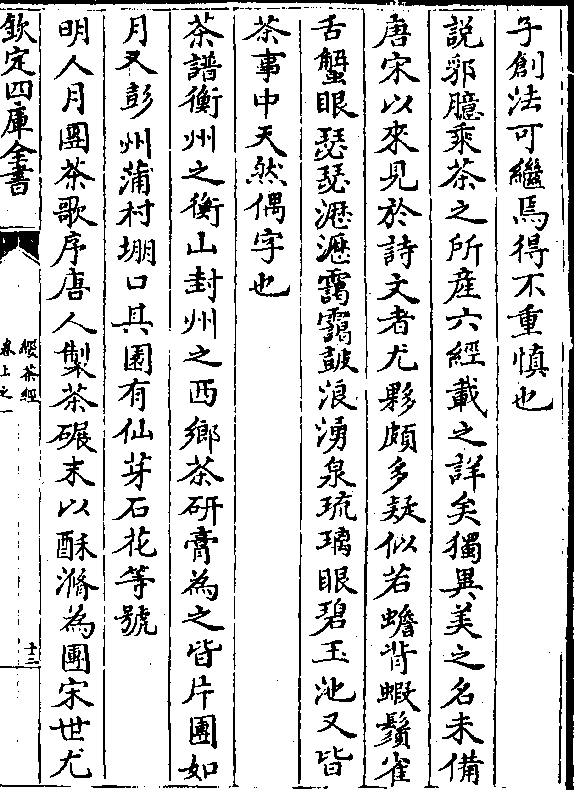 子創法可繼焉得不重慎也
説郛臆乘茶之所産六經載之詳矣獨異美之名未備
唐宋以來見於詩文者尤夥頗多疑似若蟾背蝦鬚雀
舌蟹眼瑟瑟瀝瀝靄靄皷浪湧泉琉璃眼碧玉池又皆
茶事中天然偶字也
茶譜衡州之衡山封州之西鄉茶研膏為之皆片團如
月又彭州蒲村堋口其園有仙芽石花等號
明人月團茶歌序唐人製茶碾末以酥滫為團宋世尤
欽定四庫全書
續茶經
卷上之一
十三